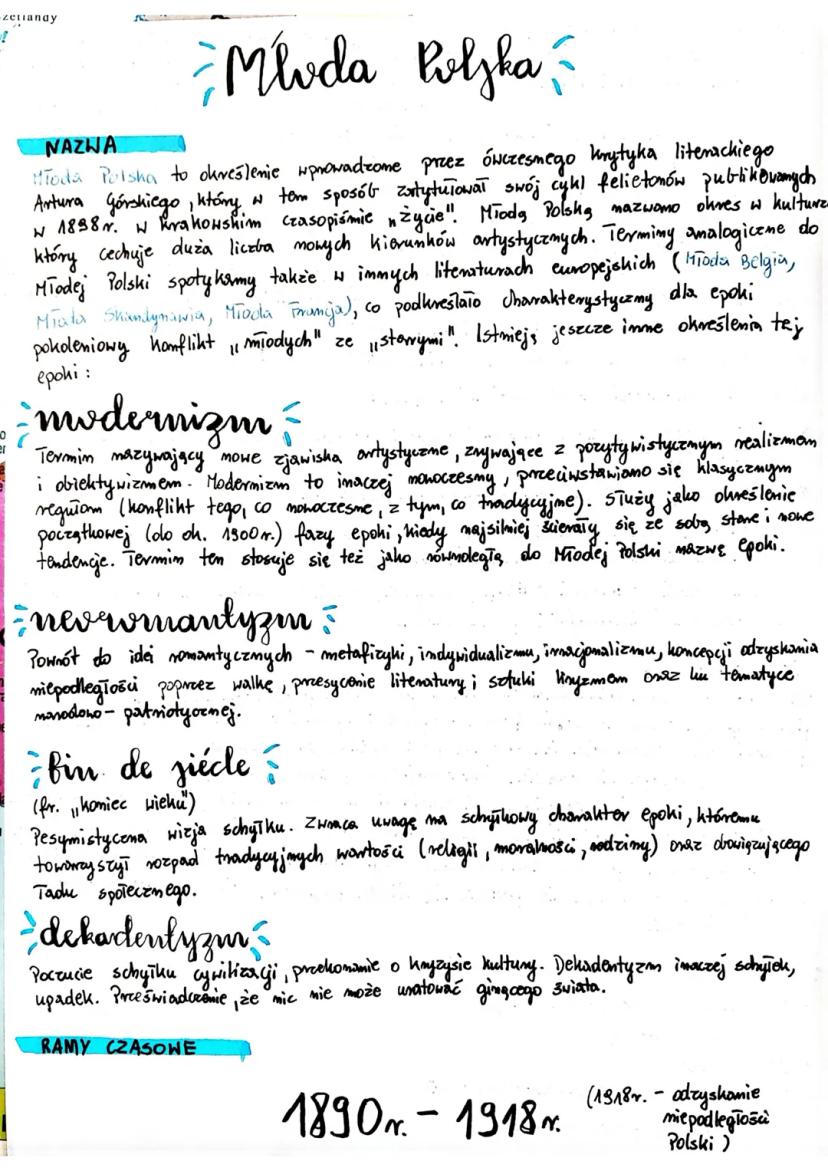 zetlandy
Młoda Polska
NAZWA
Młoda Polska to określenie wprowadzone przez ówczesnego krytyka literackiego
Artura Górskiego, który w ten sposób zatytułował swój cykl felietonów publikowanych
w 1898r. w krakowskim czasopiśmie „życie". Młodą Polską nazwano okres w kulturze
który cechuje duża liczba nowych kierunków artystycznych. Terminy analogiczne do
Młodej Polski spotykamy także w innych literaturach europejskich (Młoda Belgia,
Młoda Skandynawia, Młoda Francja), co podkreślało charakterystyczny dla epoki
pokoleniowy konflikt „młodych" ze „starymi". Istnieją jeszcze inne określenia tej
epoki:
modernizm
Termin nazywający nowe zjawiska artystyczne, zrywające z pozytywistycznym realizmem
i obiektywizmem. Modernizm to inaczej nowoczesny, przeciwstawiano się klasycznym
regułom (konflikt tego, co nowoczesne, z tym, co tradycyjne). Służy jako określenie
początkowej (do ok. 1900r.) fazy epoki, kiedy najsilniej ścierały się ze sobą stare i nowe
tendencje. Termin ten stosuje się też jako równoległą do Młodej Polski nazwę epoki.
neoromantyzm
Powrót do idei romantycznych - metafizyki, indywidualizmu, irracjonalizmu, koncepcji odzyskania
niepodległości poprzez walkę, przesycenie literatury i sztuki liryzmem oraz ku tematyce
narodowo-patriotycznej.
fin de siécle
(fr. „koniec wieku")
Pesymistyczna wizja schyłku. Zwraca uwagę na schyłkowy charakter epoki, któremu
towarzyszył rozpad tradycyjnych wartości (religii, moralności, rodziny) oraz obowiązującego
ładu społecznego.
dekadentyzm
Poczucie schyłku cywilizacji, przekonanie o kryzysie kultury. Dekadentyzm inaczej schyłek,
upadek. Przeświadczenie, że nic nie może uratować ginącego świata.
RAMY CZASOWE
1890r. - 1918r.
(1918r. - odzyskanie
niepodległości
Polski)